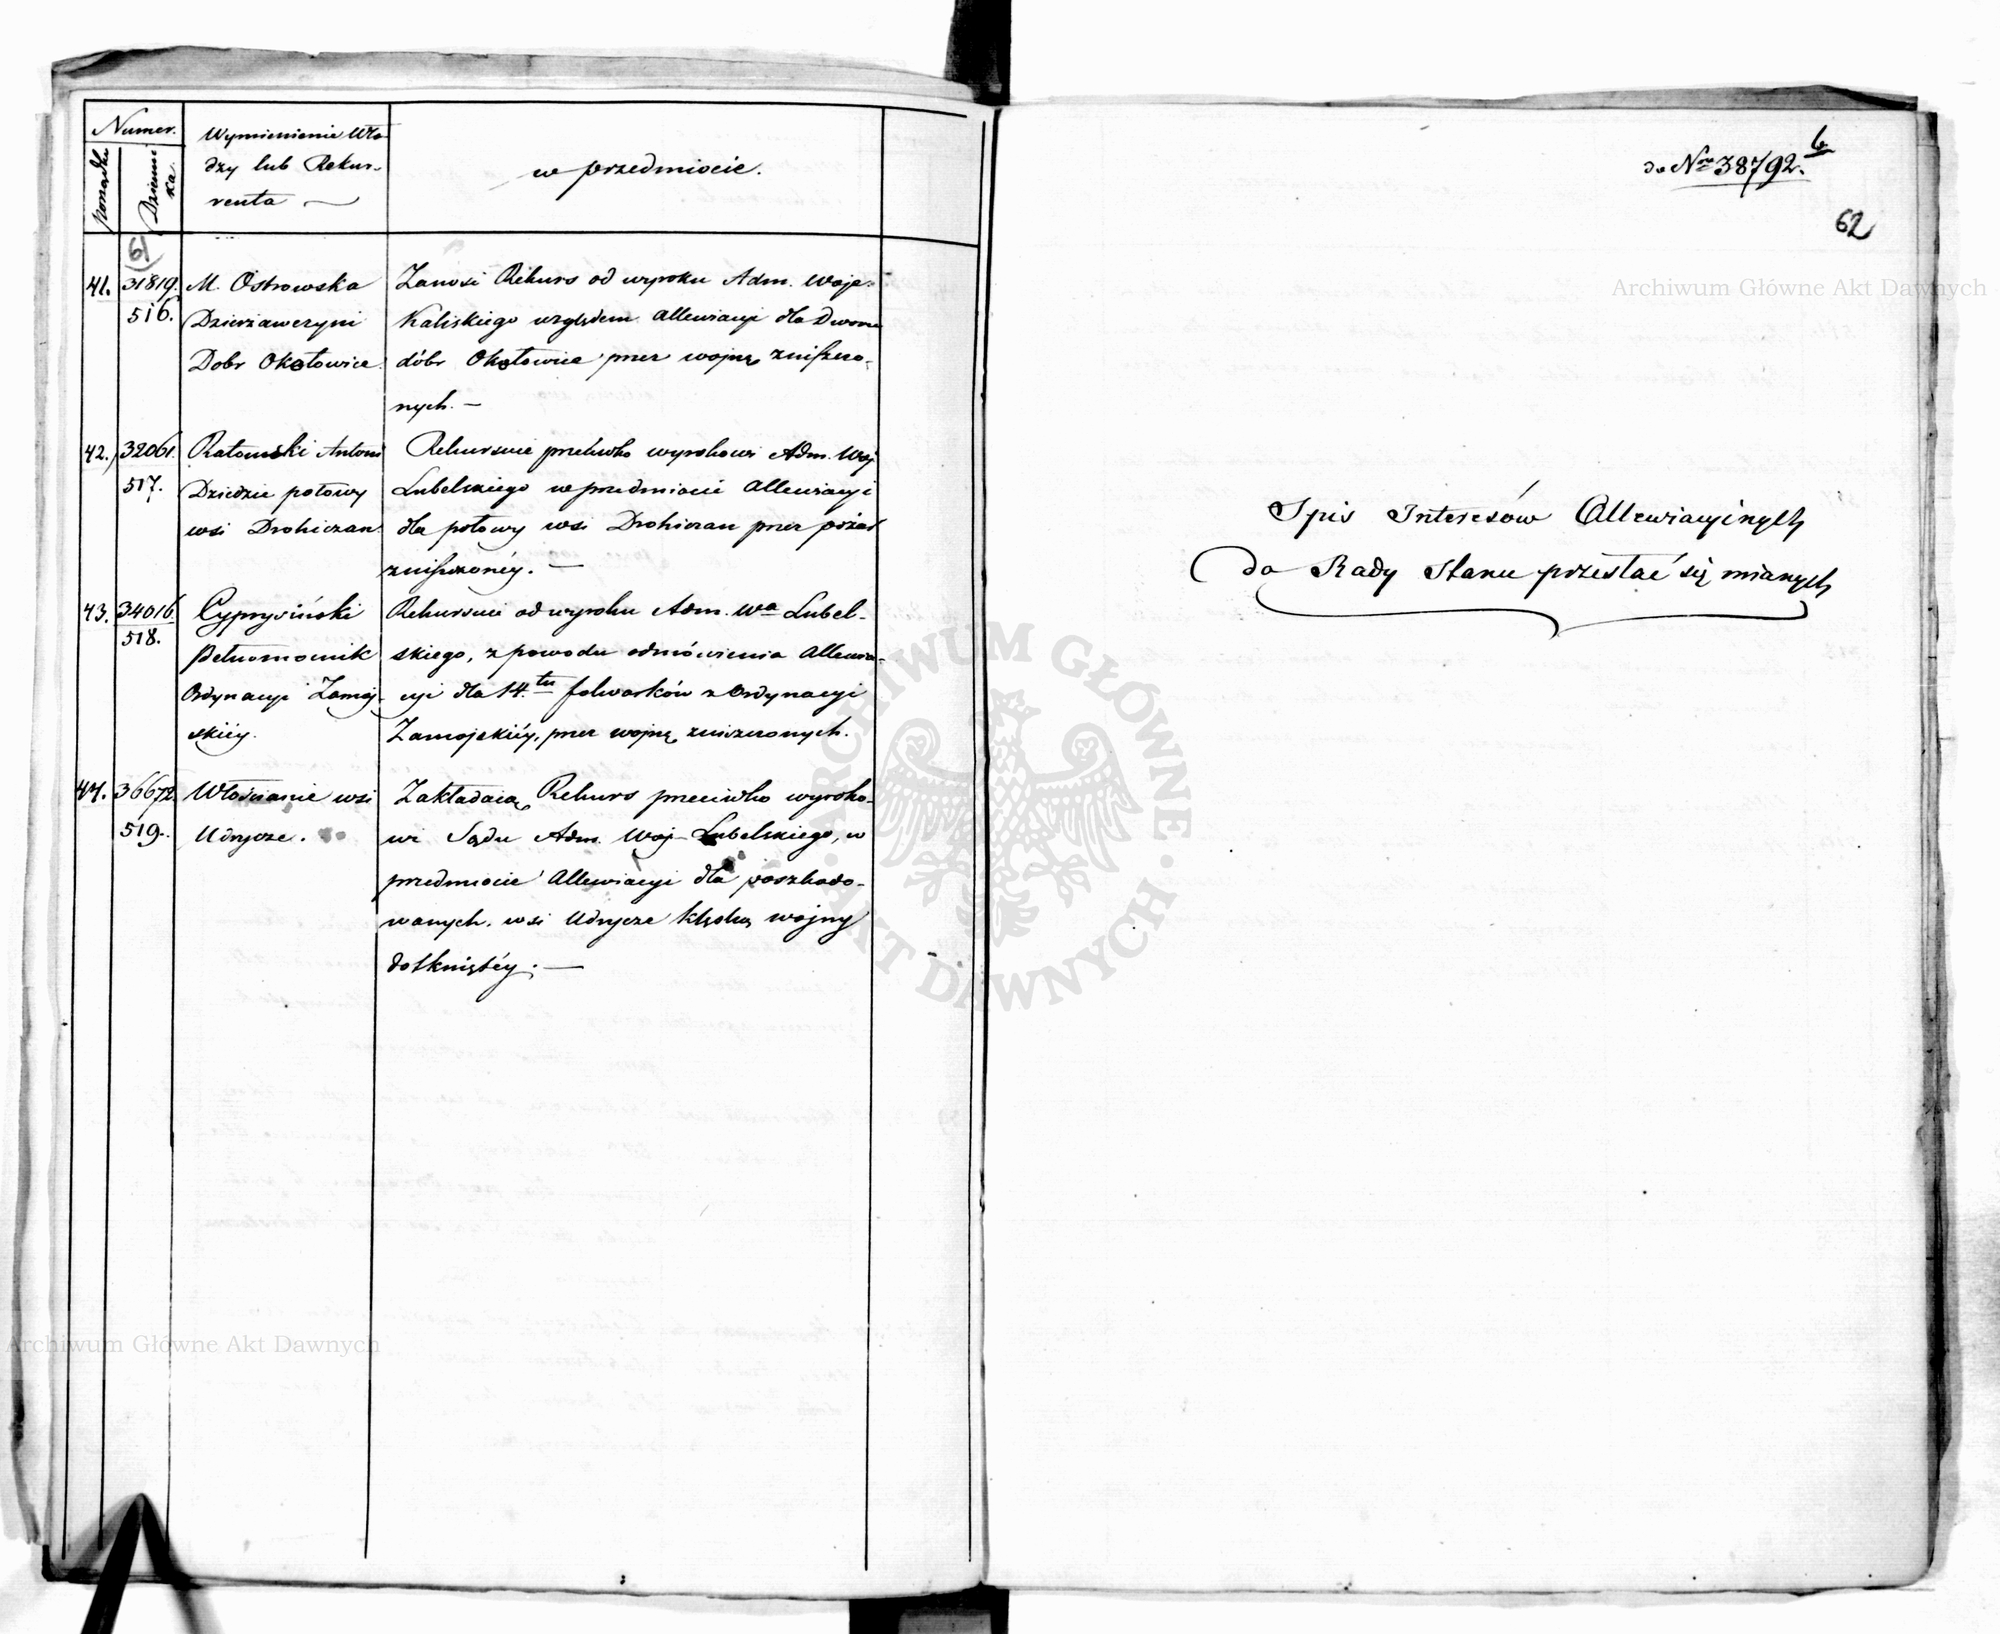 Numer.
porządku
Dziennika.
Wymienienie Wła-
dzy lub Rekur-
renta —
w przedmiocie.
61
41.
31819.
516.
M. Ostrowska
Dzierżawczyni
Dobr Okołowice
Zanosi Rekurs od wyroku Adm. Woje-
Kaliskiego względem allewiacyi dla Dworu
dóbr Okołowice przez wojnę zniszczo-
nych. —
42.
32061.
517.
Ratomski Antoni
Dziedzic połowy
wsi Drohiczan
Rekursuie przeciwko wyrokowi Adm. Woj
Lubelskiego w przedmiocie allewiacyi
dla połowy wsi Drohiczan przez pożar
zniszczonéy. —
43.
34016.
518.
Cyprysiński
Pełnomocnik
Ordynacyi Zamoj-
skiéy.
Rekursuie od wyroku Adm. Wa Lubel-
skiego, z powodu odmówienia Allewia-
cyi dla 14.tu folwarków z Ordynacyi
Zamojskiéy, przez wojnę zniszczonych.
44.
36672.
519.
Włościanie wsi
Udrycze.
Zakładaią Rekurs przeciwko wyroko-
wi Sądu Adm. Woj Lubelskiego, w
przedmiocie Allewiacyi dla poszkodo-
wanych. wsi Udrycze klęską wojny
dotkniętéy. —
do Nru 38792. b
62
Spis Interesów Allewiacyinych
do Rady Stanu przesłać się mianych
Archiwum Główne Akt Dawnych
ARCHIWUM GŁÓWNE · AKT DAWNYCH ·
Archiwum Główne Akt Dawnych